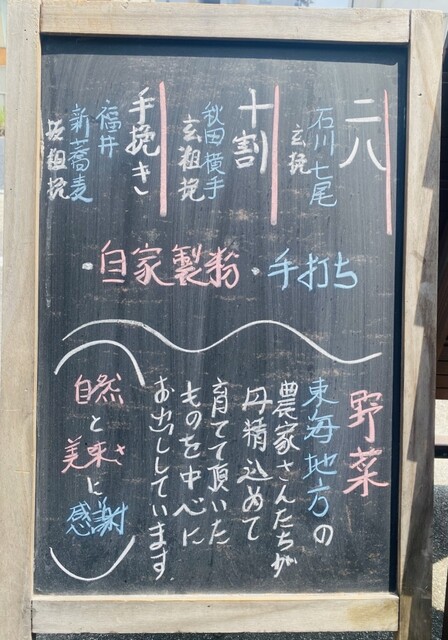 二八
石川 七尾
玄挽
十割
秋田横手
玄粗挽
手挽き
福井
新蕎麦
粗挽
・自家製粉・手打ち
野菜
東海地方の
農家さんたちが
丹精込めて
育てて頂いた
ものを中心に
お出ししています
自然
と
美味さに
感謝